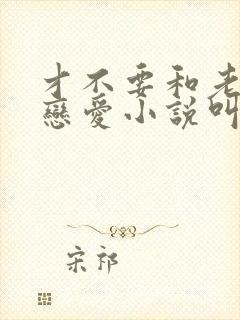 才不要和老
戀愛小說叫
宋祁